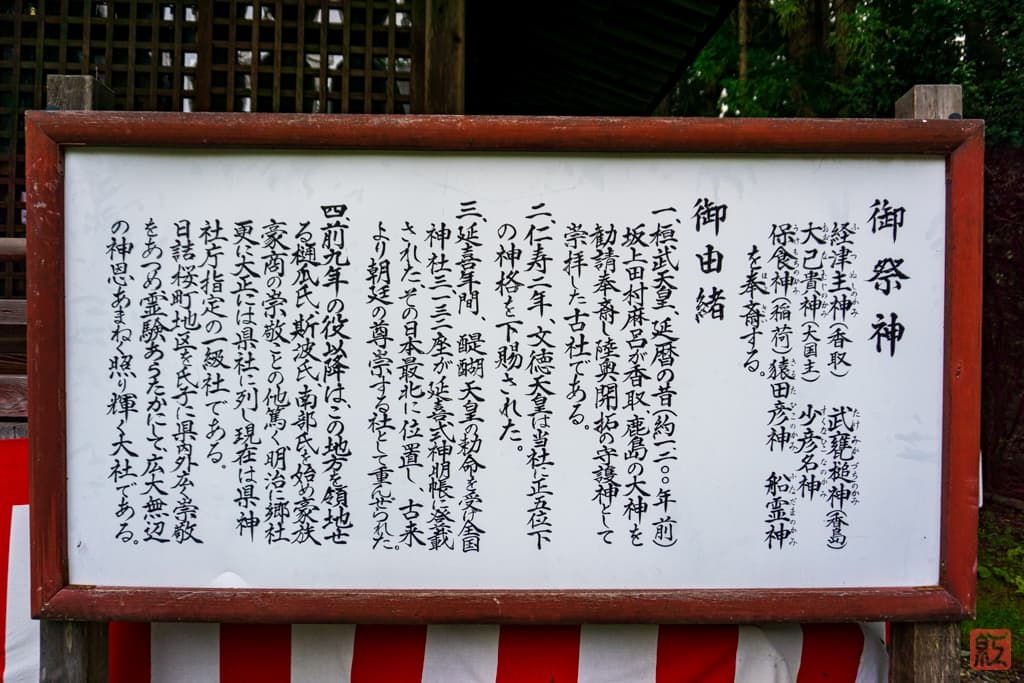 御祭神
経津主神(香取) 武甕槌神(香島)
大己貴神(大国主) 少彦名神
保食神(稲荷) 猿田彦神 船霊神
を奉斎する。
御由緒
一、桓武天皇、延暦の昔(約一二〇〇年前)
坂上田村麻呂が香取、鹿島の大神を
勧請奉斎し陸奥開拓の守護神として
崇拝した古社である。
二、仁寿二年、文徳天皇は当社に正五位下
の神格を下賜された。
三、延喜年間、醍醐天皇の勅命を受け全国
神社三一三二座が延喜式神明帳に登載
された。その日本最北に位置し、古来
より朝廷の尊崇する社として重んぜられた。
四、前九年の役以降は、この地方を領地せ
る樋爪氏、斯波氏、南部氏を始め豪族
豪商の崇敬ことの他篤く明治に郷社
更に大正には県社に列し現在は県神
社庁指定の一級社である。
日詰桜町地区を氏子に県内外広く崇敬
をあつめ霊験あらたかにて広大無辺
の神恩あまねく照り輝く大社である。